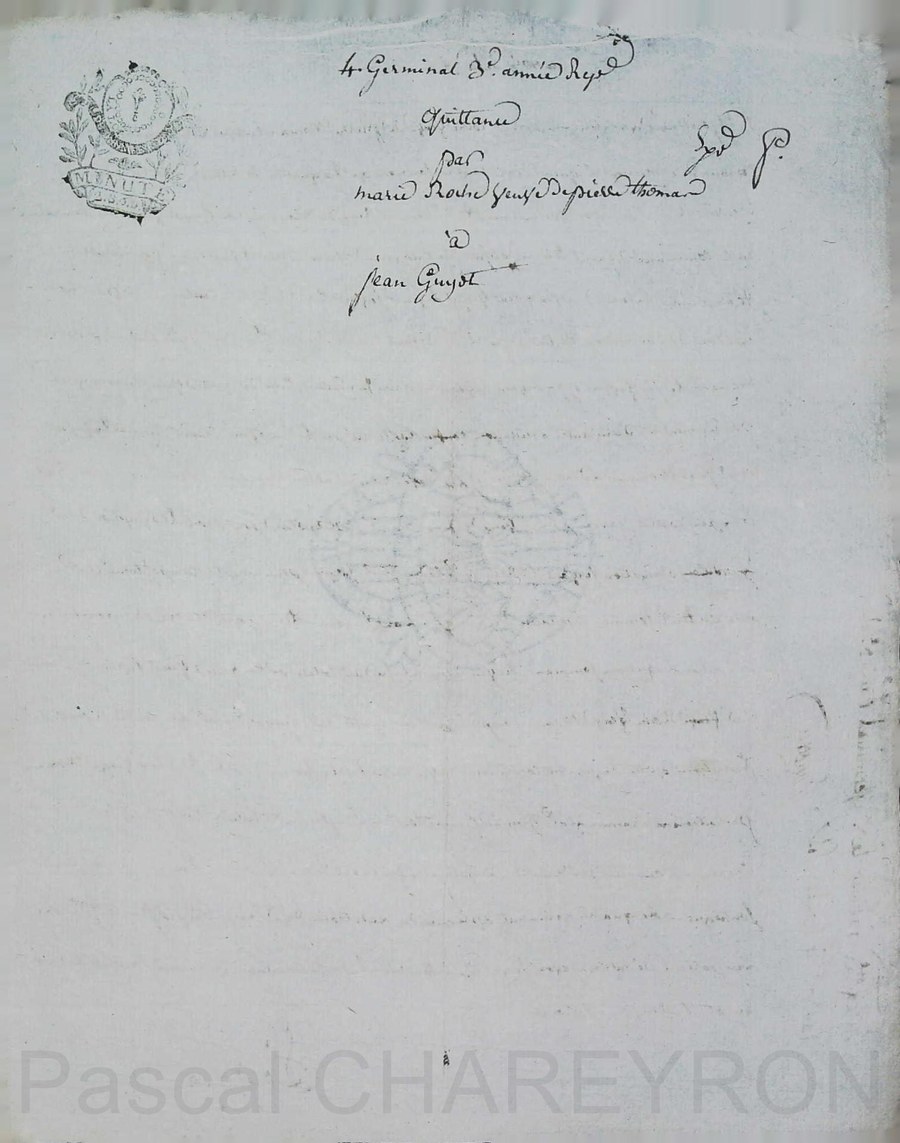 4 Germinal 3e. année Repe
Quittance
par
marie Roche veuve de pierre thomas
à
jean Guyot
Expé P.
MINUT
Pascal CHAREYRON